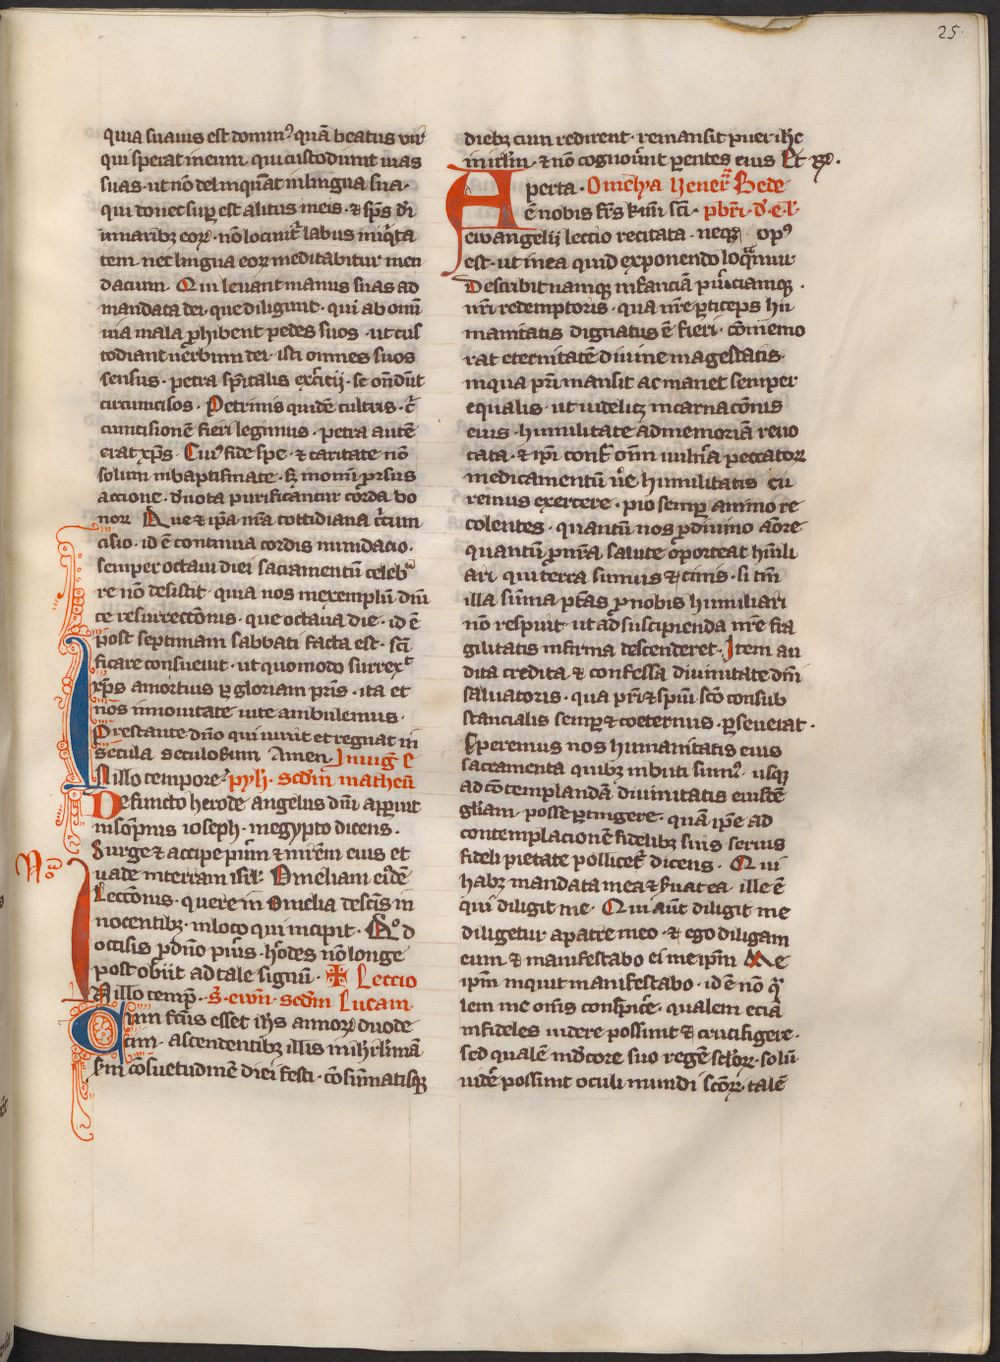 25.
quia suauis est domin⁹ quā beatus vir
qui sperat in eum. qui custodiunt uias
suas. ut nō delinquāt in lingua sua.
qui donec suꝑ est alitus meis. ⁊ sp̄s di
in naribꝫ eoꝝ. nō locūt᷑ labiis iniq̄ta
tem. nec lingua eoꝝ meditabitur men
dacium. Qui leuant manus suas ad
mandata dei. que diligunt. qui ab omī
uia mala ꝓhibent pedes suos. ut cus
todiant uerbum dei. isti omnes suos
sensus. petra sp̄italis exc̄itij. se ondūt
circumcisos. Petrinis quidē cultris. c̄
cumcisionē fieri legimus. petra autē
erat xp̄s. Cui⁹ fide spe. ⁊ caritate nō
solum in baptismate. sꝫ in omī prsus
accione. deuota purificantur corda bo
noꝝ Que ⁊ ip̄a nr̄a cottidiana c̄cum
cisio. id ē continua cordis mundacio.
semper octaui diei sacramentū celeb̄
re nō desistit. quia nos in exemplū dn̄i
ce resurrectōnis. que octaua die. id ē
post septimam sabbati facta est. sc̄i
ficare consueuit. ut quomodo surrexᵗ
xp̄s a mortuis ꝑ gloriam pr̄is. ita et
nos in nouitate uite ambulemus.
Prestante dn̄o qui uiuit et regnat in
secula seculorum Amen In uiḡ e
In illo tempore. pyh. scdm matheū
Defuncto herode angelus dn̄i apparuit
in sōpnis ioseph. in egypto dicens.
Surge ⁊ accipe pūm ⁊ mr̄em eius et
uade in terram isrl. Omeliam eidē
Leccōnis. quere in Omelia de scīs in
nocentibꝫ. in loco qui incipit. Qꝺ
No
occisis ꝓ dn̄o pūis. hōdes nō longe
post obiit ad tale signū. ✠ Leccio
In illo temp̄. s̄. ewn̄. scdm Lucam
Cum fc̄us esset ih̄s annoꝝ duode
cim. ascendentibꝫ illis in ihrl̄imā
sm̄ cōsuetudinē diei festi. cōsūmatisqꝫ
diebꝫ cum redirent. remansit puer ih̄c
in irl̄m. ⁊ nō cognouīnt ꝑentes eius Et rꝫ.
Aperta. Omelya Uener̄. Bede
ē nobis fr̄s km̄i sc̄i. pbr̄i. d. e. l.
ewangelij leccio recitata. neqꝫ op⁹
est. ut in ea quid exponendo loq̄mur
Describit namqꝫ infanciam pūiciamqꝫ.
nr̄i redemptoris. qua nr̄e ꝑticeps hu
manitatis dignatus ē fieri. cōmemo
rat eternitatē diuine magestatis.
in qua pr̄i mansit ac manet semper
equalis. ut uidelicꝫ incarnacōnis
eius. humilitate ad memoriā reuo
cata. ⁊ ip̄i cont̄ om̄i uuln̄a peccatoꝝ
medicamentū ue humilitatis cu
remus exercere. pio semꝑ animo re
colentes. quantū nos ꝓ diuino aōre
quantū ꝓ nr̄a salute oporteat hūili
ari. qui terra sumus ⁊ cinis. si tm̄
illa sūma ptās ꝓ nobis humiliari
nō respuit. ut ad suscipienda nr̄e fra
gilitatis infirma descenderet. Item au
dita credita ⁊ confessa diuinitate dn̄i
saluatoris. qua pr̄i ⁊ spiūi sc̄o consub
stancialis semꝑ ⁊ coeternus. ꝑseuerat.
Speremus nos humanitatis eius
sacramenta quibꝫ inbuti sum⁹. usqꝫ
ad cōtemplandā diuinitatis eiusdē
gliam. posse ꝑtingere. quā ip̄e ad
contemplacionē fidelibꝫ suis seruis
fideli pietate pollicet᷑ dicens. Qui
habꝫ mandata mea ⁊ s̄uat ea. ille ē
qui diligit me. Qui aūt diligit me
diligetur a patre meo. ⁊ ego diligam
eum ⁊ manifestabo ei me ip̄m Me
ip̄m inquit manifestabo. id ē nō q̄
lem me om̄s conspic̄e. qualem eciā
infideles uidere possunt ⁊ crucifigere.
sed qualē mdicore suo regē sc̄loꝝ. solū
uidē possunt oculi mundi sc̄oꝝ. talē